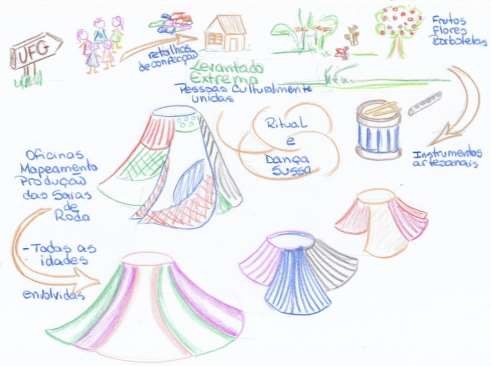 UFG
retalhos
de confecção
Levantado
Extrema
Pessoas Culturalmente
unidas
Frutos
Flores
Borboletas
Ritual
e
Dança
Sussa
Instrumentos
artesanais
Oficinas
Mapeamento
Produção
das Saias
de
Roda
- Todas as
idades
envolvidas